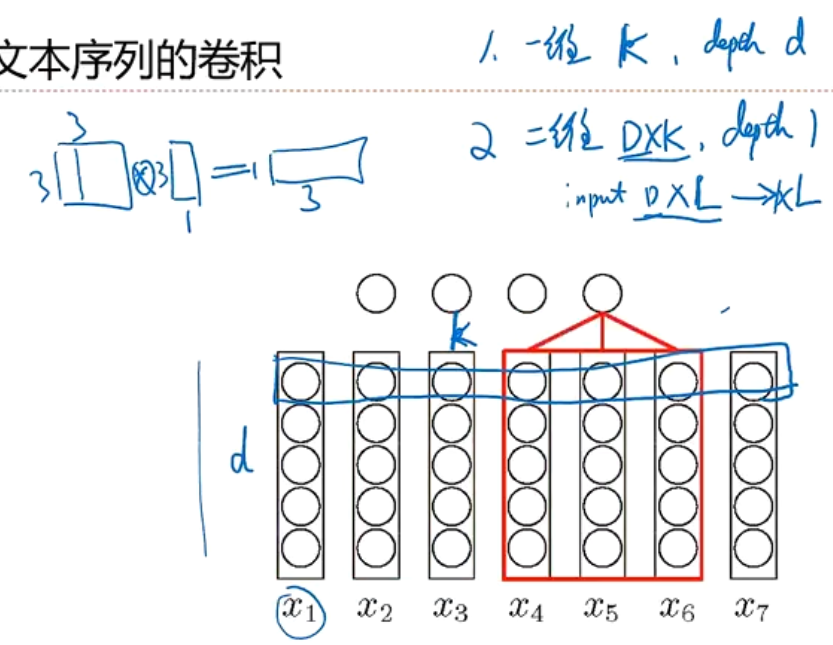 文本序列的卷积
1. 一维 k, depth d
2 二维 D×K, depth 1
input D×L → ×L
3
3 ⊗ 3 = 1
1 3
k
d
x₁ x₂ x₃ x₄ x₅ x₆ x₇